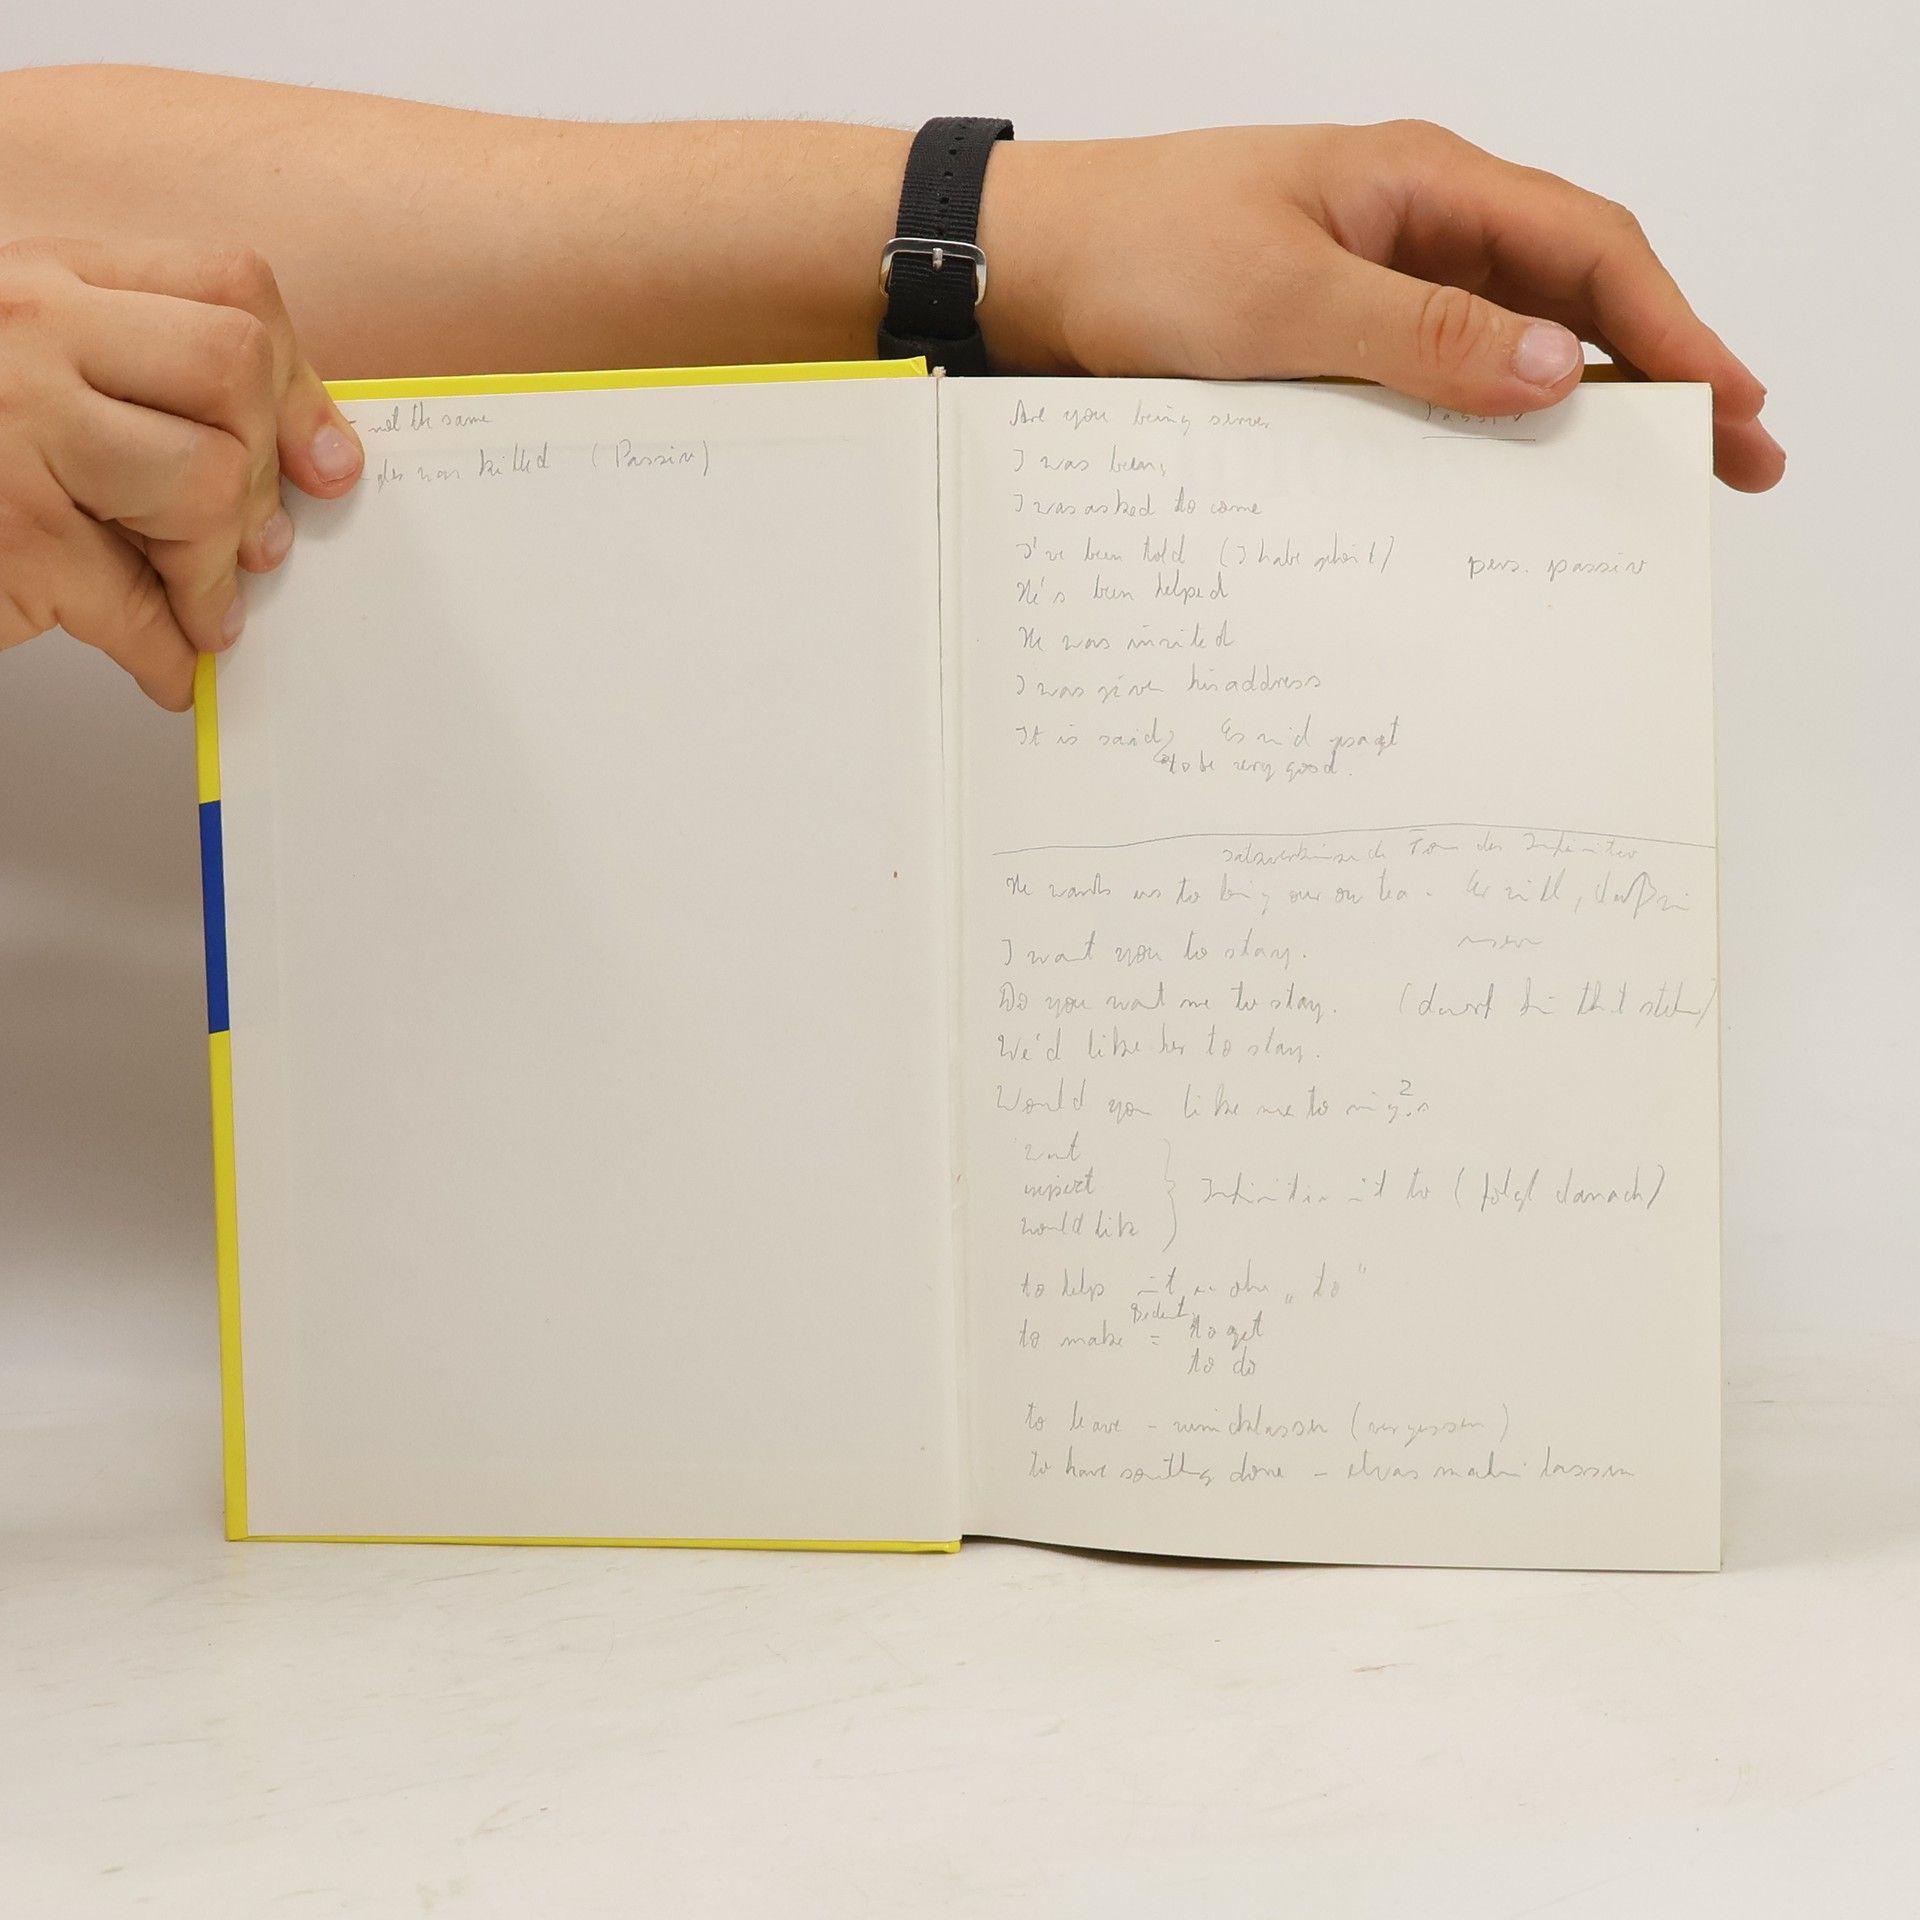 not the same
was killed (Passiv)
Are you being
Passiv
I was
I was asked to come
I've been told (I habe gehört) pers. passiv
He's been helped
He was invited
I was given his address
It is said, Es wird gesagt
to be very good.
Form des Infinitiv
He wants us to our tea. Er will, daß wir
I want you to stay.
Do you want me to stay. (
We'd like her to stay.
Would you like me to
want
expect
would like
Infinitiv mit to (folgt danach)
to help mit ohne "to"
to make = to get
to do
to leave - zurücklassen (vergessen)
to have something done - etwas machen lassen